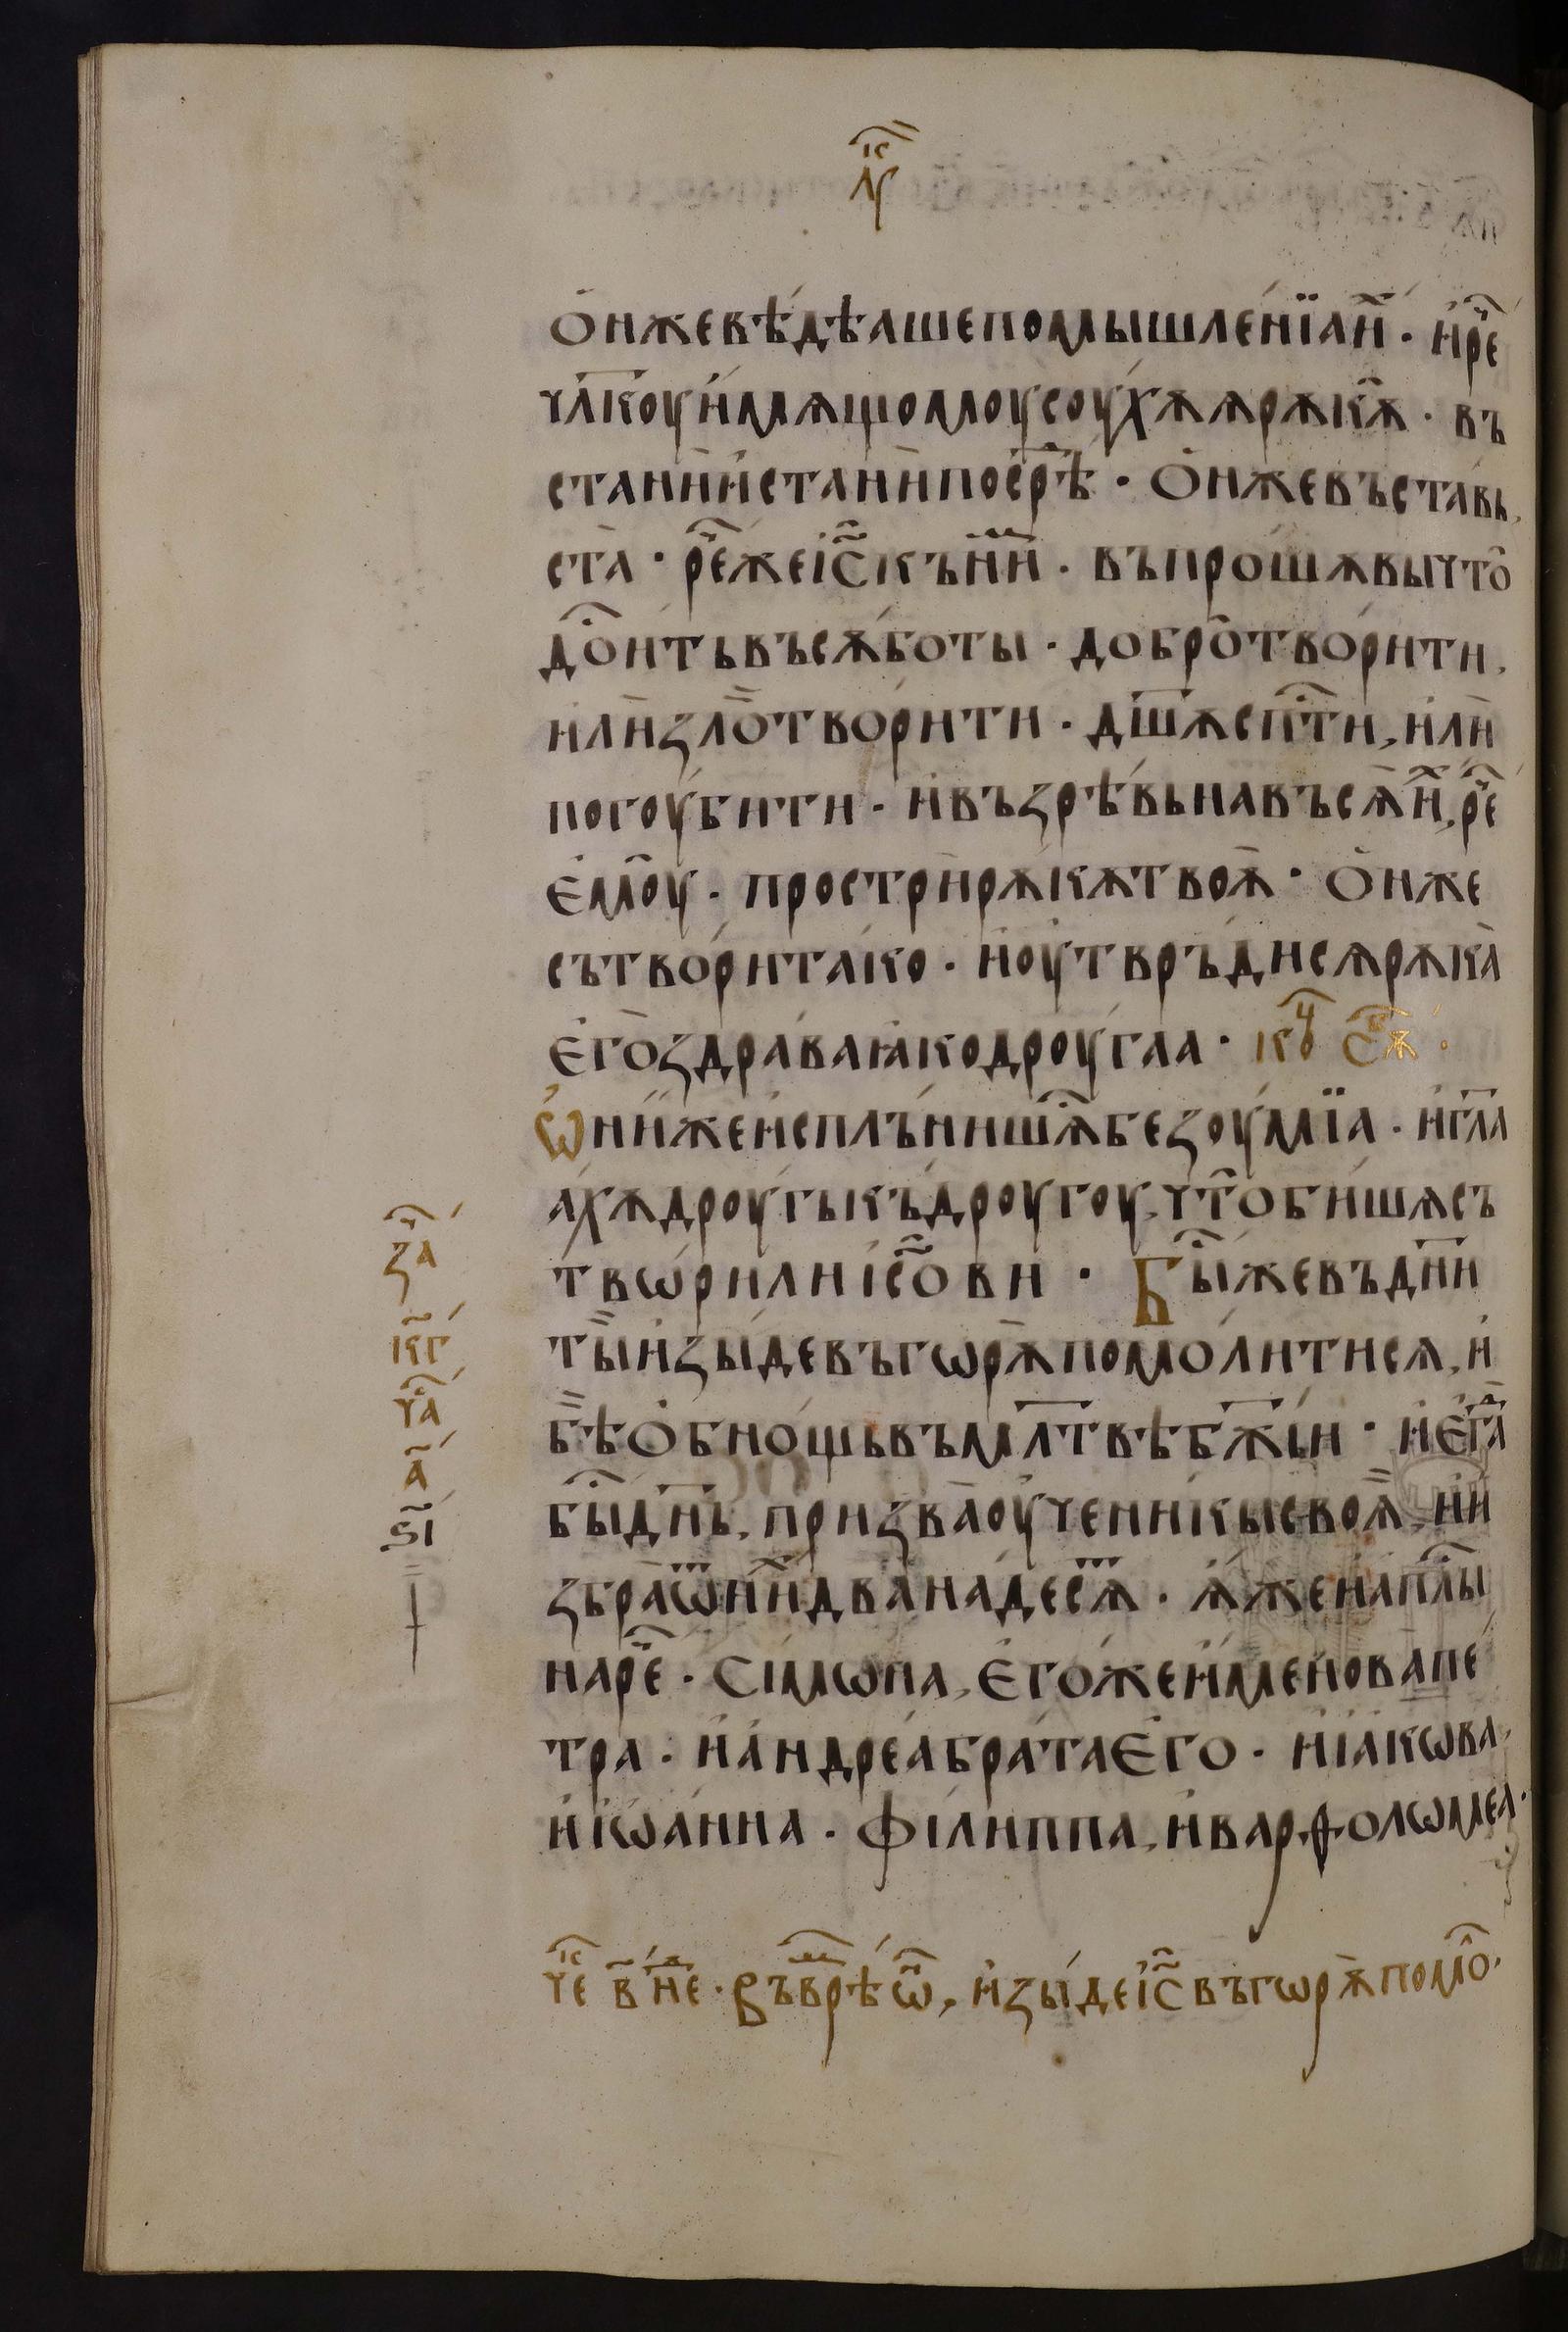 лꙋ҇к
ѻ҆нжевѣ́дѣашепомышле́нїаи҆̑ · и҆ре҇
чл҃коуи҆мѫщомоусоу́хѫѫрѫ́кѫ · въ
стани̏и҆стани̏посрѣ́д · ѻ҆нжевъста́вь,
ста̀ · ре҇жеі҆с҃къни́м · въпрошѫ́вычто̀
до҇итьвъсѫ́боты · добро̀твори́ти,
и҆лѝзло̏твори́ти · дш҃ѫсп҇ти, и҆лѝ
погоуби́ти · и҆възрѣ́вьнавъсѧ̀и҆̑, ре҇
е҆моу̀ · прострѝрѫ́кѫтвоѫ̀ · ѻ҆нже
сътвори́та́ко · и҆оу҆твръ́дисѧрѫка̀
е҆го̀здра́ваꙗ҆́кодроу́гаа · ко҇ц сѫ҇б ·
ѡ҆ни́жеи҆спль́нишѧ҇безоу́мїа · и҆гл҃а
а́хѫдроу́гыкъдроу́гоу, что̀би́шѧсъ
твѡри́лиі҆с҃ови · Бы҇жевъдн҃и
ты̏и҆зы́девъгѡрѫ̀помоли́тисѧ, и҆
бѣ̏ѻ҆бно́щьвъмл҃твѣбж҃їи · и҆е҆гда̀
бы҇дн҃ь, призва̀оу҆ченикы́своѧ̏, и҆и
збра̀ѿни́хдвана́десѧт · ѧ҆́жеи҆ап҇лы
наре҇ · Сі́мѡна, е҆го́жеи҆менова̀пе
тра · и҆а҆ндре́абра́тає҆го · и҆і҆а́кѡва,
и҆і҆ѡа́нна · фі́липпа, и҆варѳоломѡ́меа ·
за҇ч
к҃г
ча҇с
а҃
ѕ҃і
че҇т в҃ не҇д · въврѣ́мѡ҇н, и҆зы́деі҆с҃въгѡрѫ̀помо̑ ·